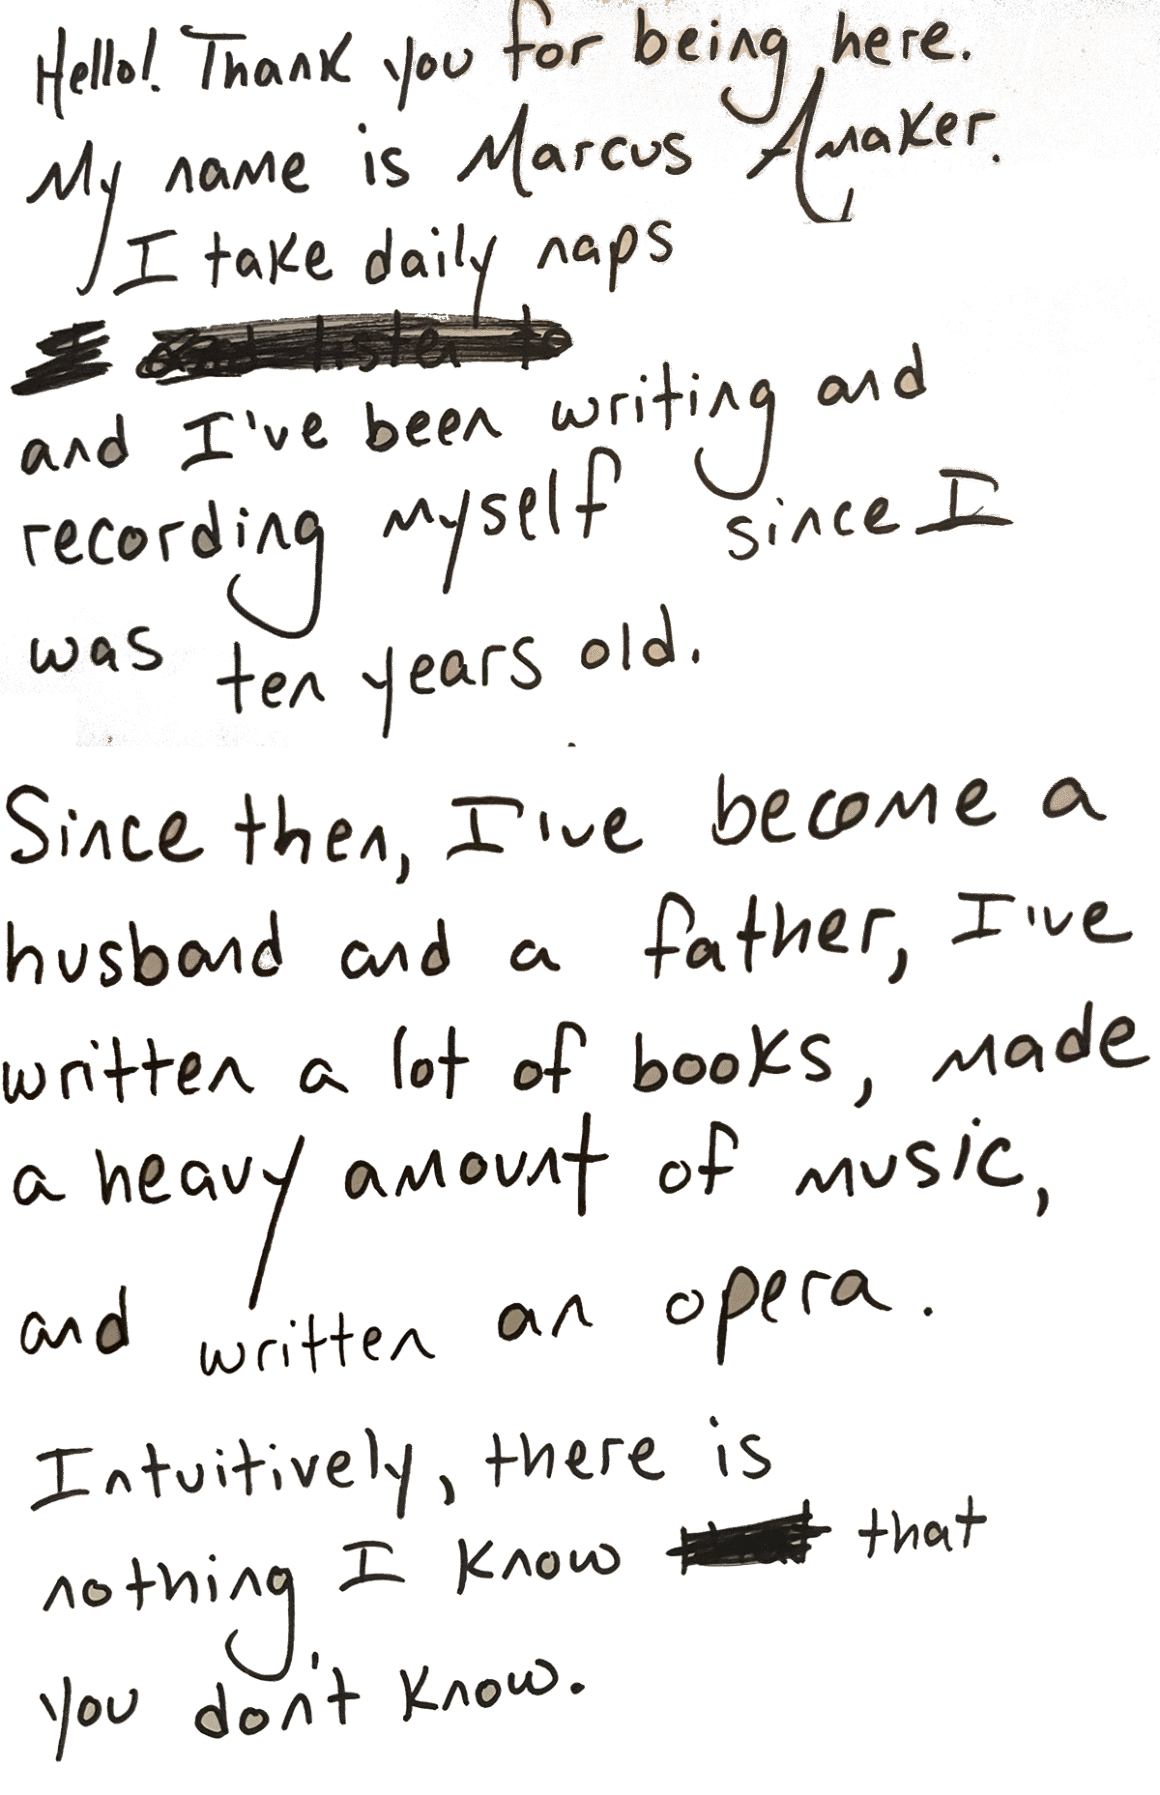 Hello! Thank you for being here.
My name is Marcus Amaker.
I take daily naps
and I've been writing and
recording myself since I
was ten years old.
Since then, I've become a
husband and a father, I've
written a lot of books, made
a heavy amount of music,
and written an opera.
Intuitively, there is
nothing I know that
you don't know.